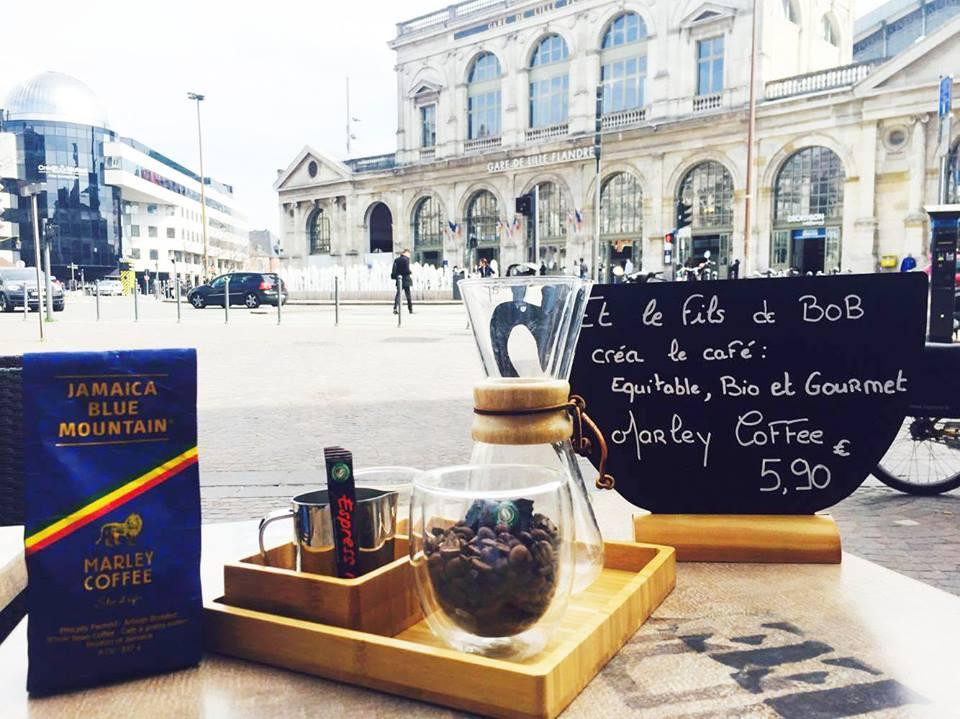 GARE DE LILLE FLANDRE
Et le Fils de BoB
créa le café :
Equitable, Bio et Gourmet
Marley Coffee
5,90 €
JAMAICA
BLUE
MOUNTAIN
MARLEY
COFFEE
Express
DECATHLON